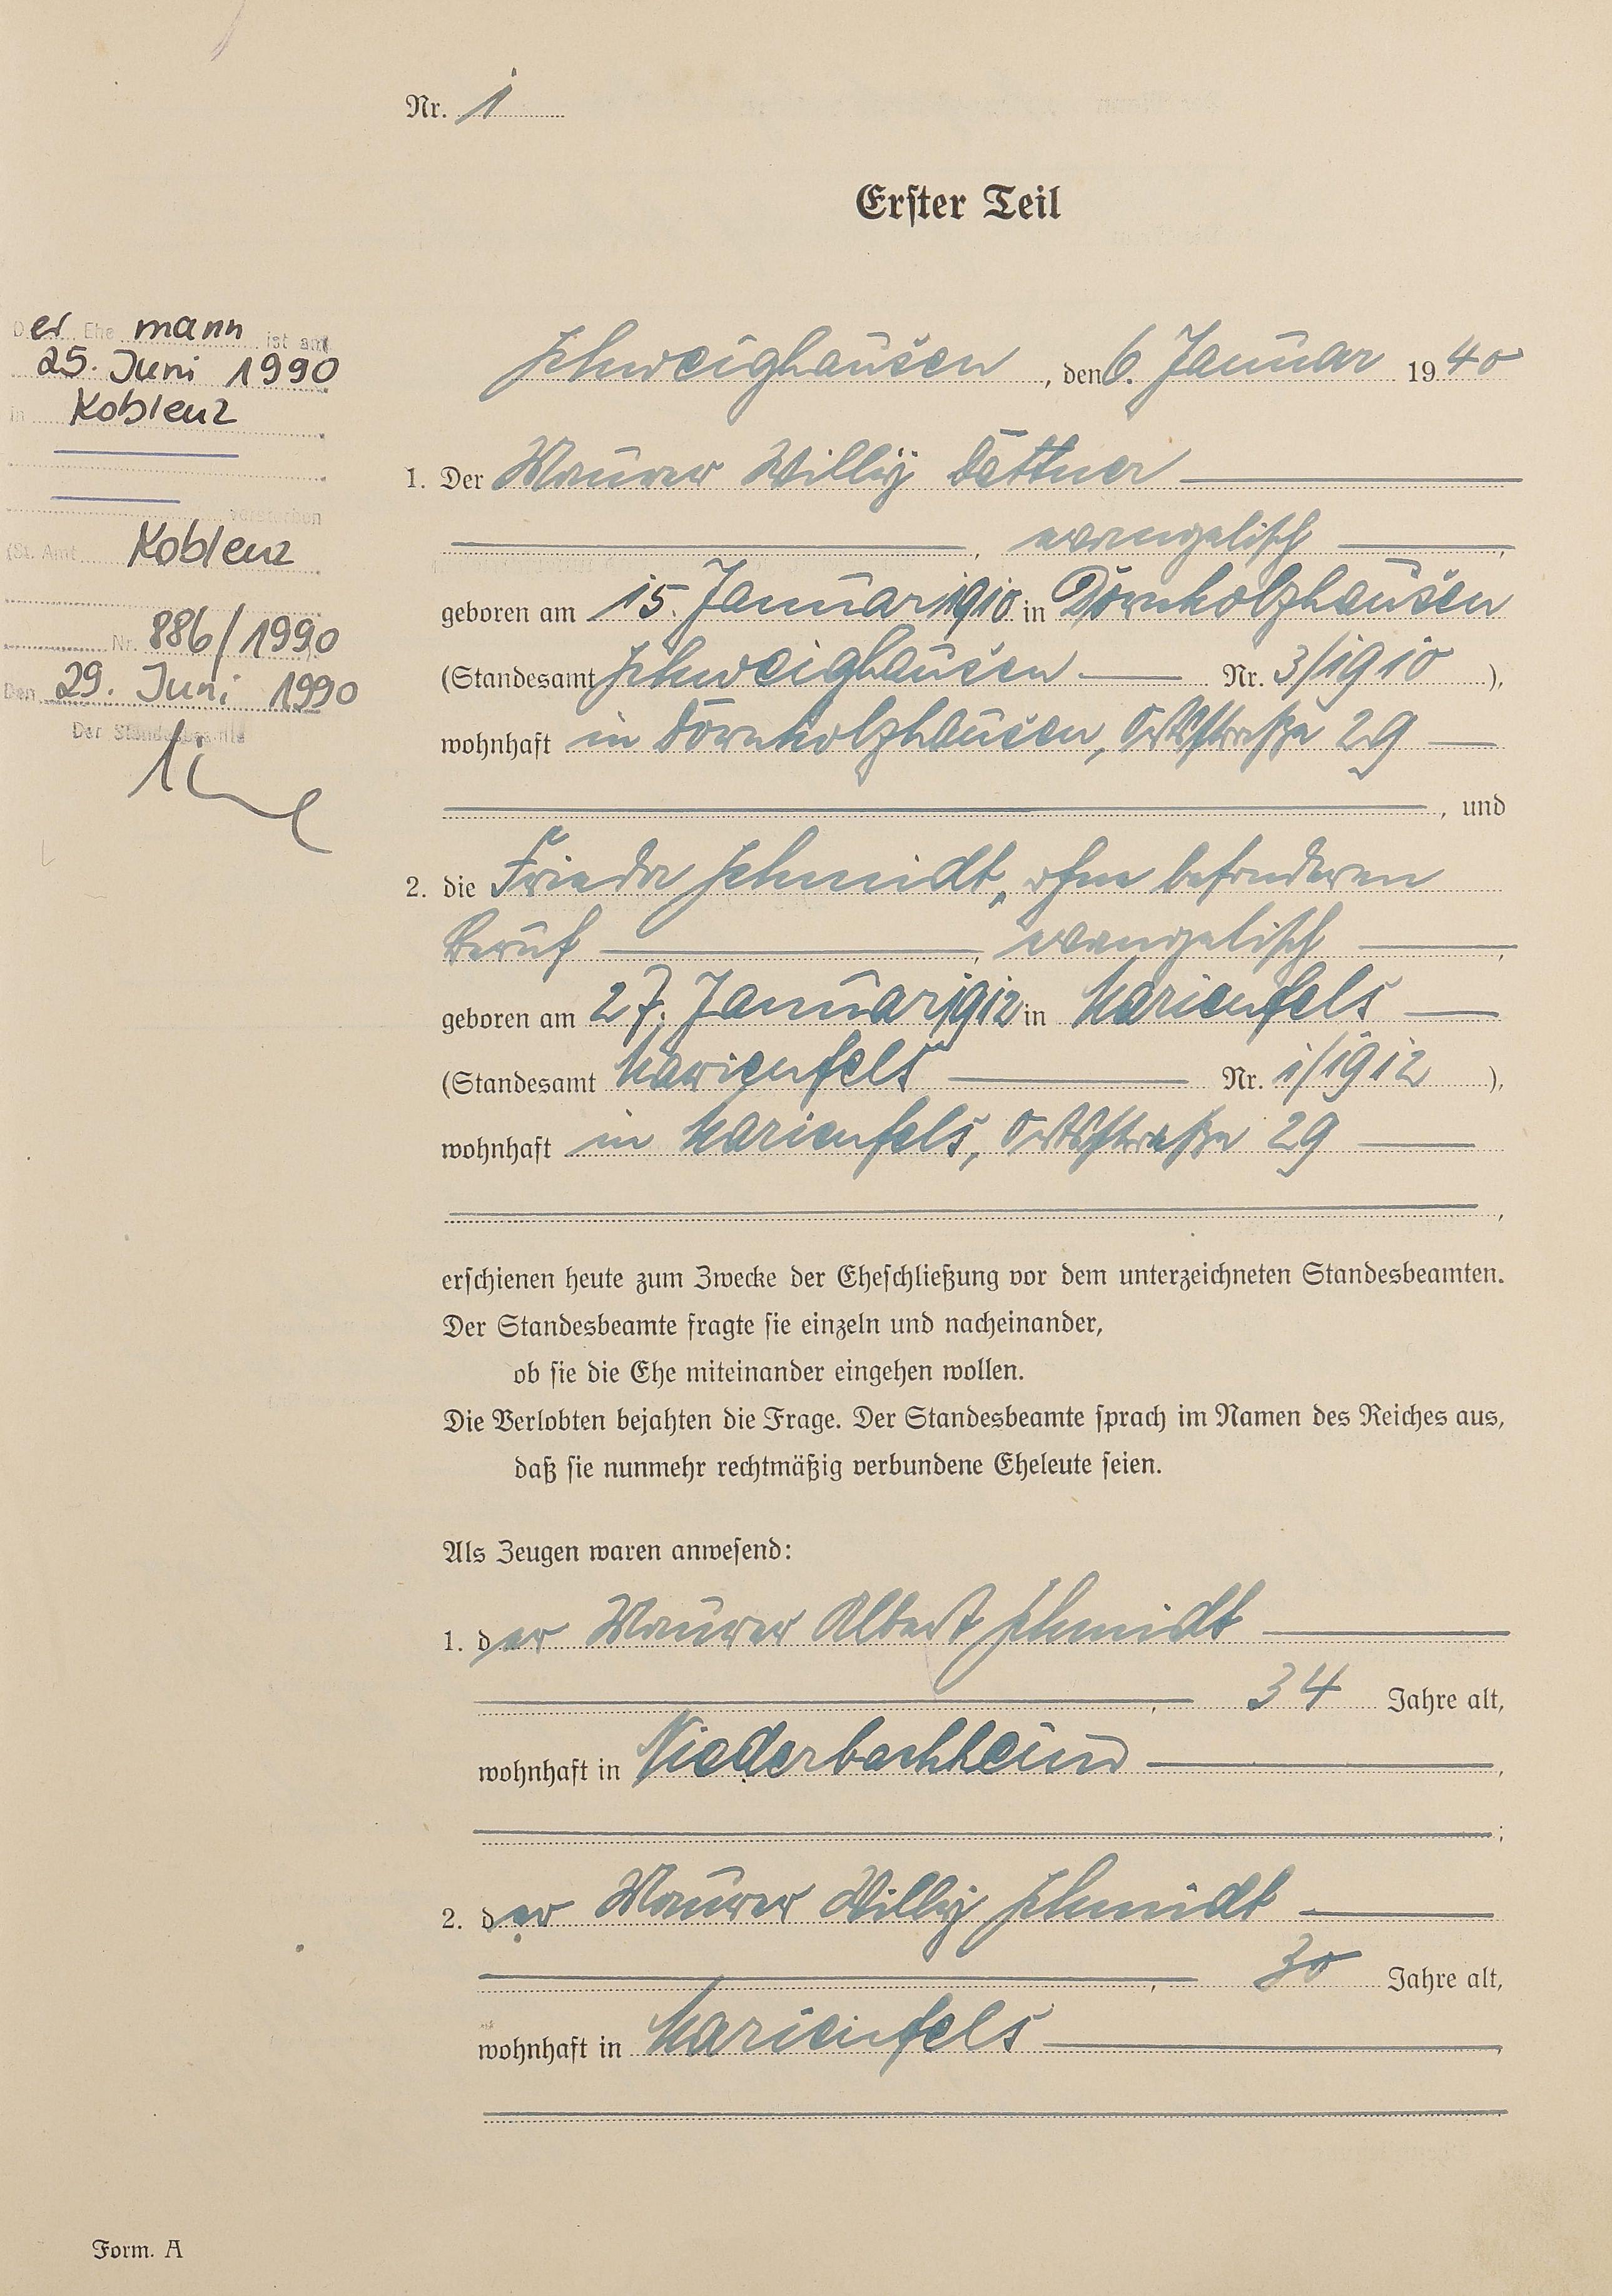 Nr. 1
Erster Teil
Der Ehe mann ist am
25. Juni 1990
in Koblenz
verstorben
(St. Amt Koblenz
Nr. 886/1990
Den 29. Juni 1990
Der Standesbeamte
Schweighausen, den 6. Januar 1940
1. Der Maurer Willy Dättner
, evangelisch,
geboren am 15. Januar 1910 in Dornholzhausen
(Standesamt Schweighausen Nr. 3/1910 ),
wohnhaft in Dornholzhausen, Ortsstraße 29
, und
2. die Frieda Schmidt, ohne besonderen
Beruf, evangelisch,
geboren am 27. Januar 1912 in Marienfels
(Standesamt Marienfels Nr. 1/1912 ),
wohnhaft in Marienfels, Ortsstraße 29
,
erschienen heute zum Zwecke der Eheschließung vor dem unterzeichneten Standesbeamten.
Der Standesbeamte fragte sie einzeln und nacheinander,
ob sie die Ehe miteinander eingehen wollen.
Die Verlobten bejahten die Frage. Der Standesbeamte sprach im Namen des Reiches aus,
daß sie nunmehr rechtmäßig verbundene Eheleute seien.
Als Zeugen waren anwesend:
1. der Maurer Albert Schmidt
, 34 Jahre alt,
wohnhaft in Niederbachheim,
;
2. der Maurer Willy Schmidt
, 30 Jahre alt,
wohnhaft in Marienfels,
Form. A